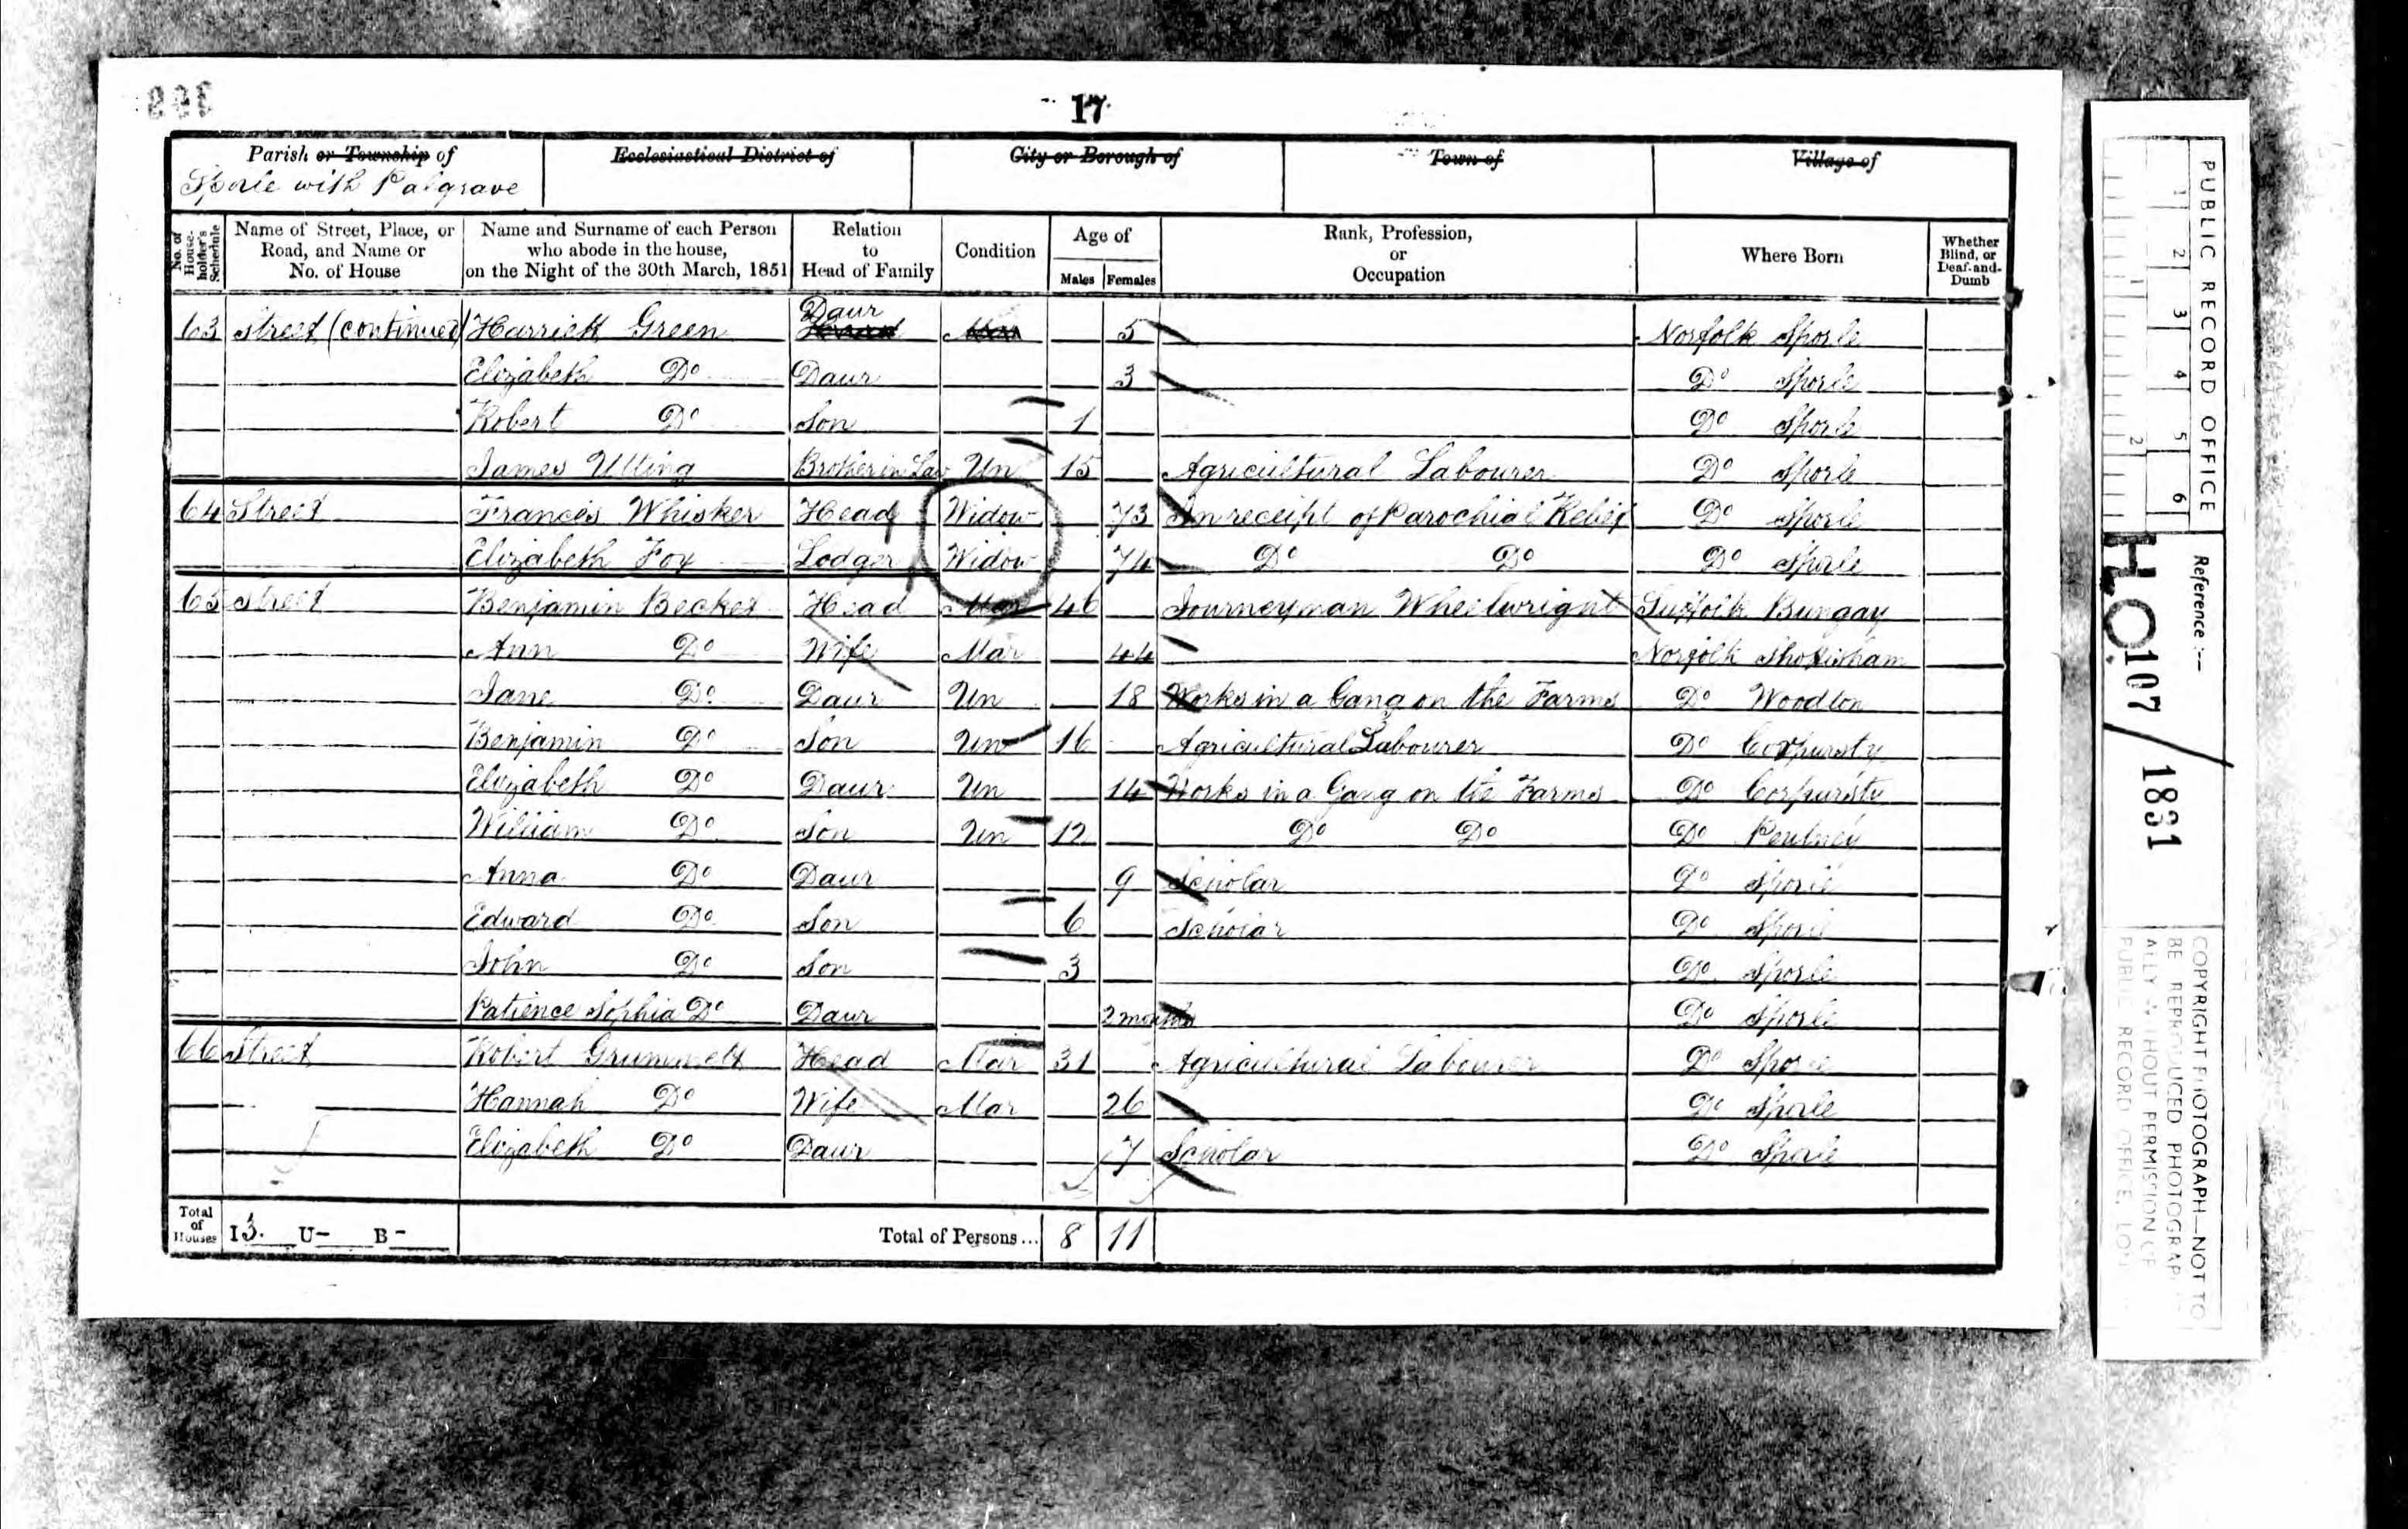 17
Parish or Township of
Sporle with Palgrave
Ecclesiastical District of
City or Borough of
Town of
Village of
No. of House-holder's Schedule
Name of Street, Place, or Road, and Name or No. of House
Name and Surname of each Person who abode in the house, on the Night of the 30th March, 1851
Relation to Head of Family
Condition
Age of
Males Females
Rank, Profession, or Occupation
Where Born
Whether Blind, or Deaf-and-Dumb
63 Street (continued) Harriett Green Daur 5 Norfolk Sporle
Elizabeth Do Daur 3 Do Sporle
Robert Do Son 1 Do Sporle
James Utting Brother in Law Un 15 Agricultural Labourer Do Sporle
64 Street Frances Whisker Head Widow 73 In receipt of Parochial Relief Do Sporle
Elizabeth Fox Lodger Widow 74 Do Do Do Sporle
65 Street Benjamin Becket Head Mar 46 Journeyman Wheelwright Suffolk Bungay
Ann Do Wife Mar 44 Norfolk Shotisham
Jane Do Daur Un 18 Works in a Gang on the Farms Do Woodton
Benjamin Do Son Un 16 Agricultural Labourer Do Corpursty
Elizabeth Do Daur Un 14 Works in a Gang on the Farms Do Corpursty
William Do Son Un 12 Do Do Do
Anna Do Daur 9 Scholar Do Sporle
Edward Do Son 6 Scholar Do Sporle
John Do Son 3 Do Sporle
Patience Sophia Do Daur 2 months Do Sporle
66 Street Robert Grummett Head Mar 31 Agricultural Labourer Do Sporle
Hannah Do Wife Mar 26 Do Sporle
Elizabeth Do Daur 7 Scholar Do Sporle
Total of Houses I 3. U- B-
Total of Persons... 8 11
PUBLIC RECORD OFFICE
1 2 3 4 5 6
1 2
Reference :-
H.O. 107 / 1831
COPYRIGHT PHOTOGRAPH—NOT TO
BE REPRODUCED PHOTOGRAPHIC
ALLY WITHOUT PERMISSION OF
PUBLIC RECORD OFFICE, LON